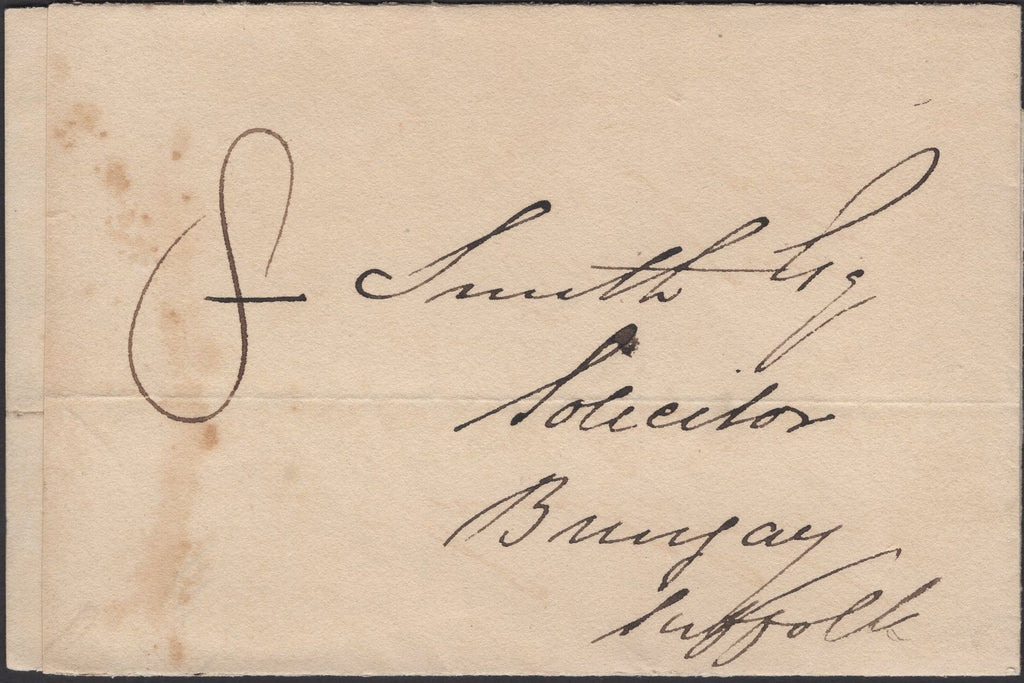 8 Smith Esq
Solicitor
Bungay
Suffolk